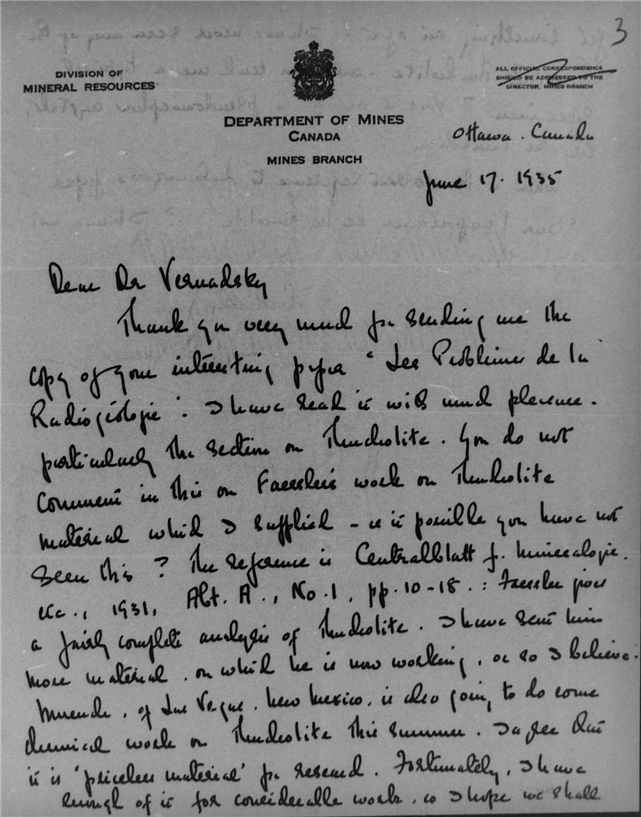 3
DIVISION OF
MINERAL RESOURCES
DEPARTMENT OF MINES
CANADA
MINES BRANCH
ALL OFFICIAL CORRESPONDENCE
SHOULD BE ADDRESSED TO THE
DIRECTOR, MINES BRANCH
Ottawa. Canada
June 17. 1935
Dear Dr Vernadsky
Thank you very much for sending me the
copy of your interesting paper "Les Problèmes de la
Radiogéologie". I have read it with much pleasure.
particularly the section on Thucholite. You do not
comment in this on Faessler's work on Thucholite
material which I supplied - is it possible you have not
seen this? The reference is Centralblatt f. Mineralogie.
etc., 1931, Abt. A., No. 1. pp. 10-18.: Faessler gives
a fairly complete analysis of Thucholite. I have sent him
more material. on which he is now working, or so I believe.
of Las Vegas. New Mexico. is also going to do some
chemical work on Thucholite this summer. I agree that
it is 'priceless material' for research. Fortunately, I have
enough of it for considerable work. so I hope we shall